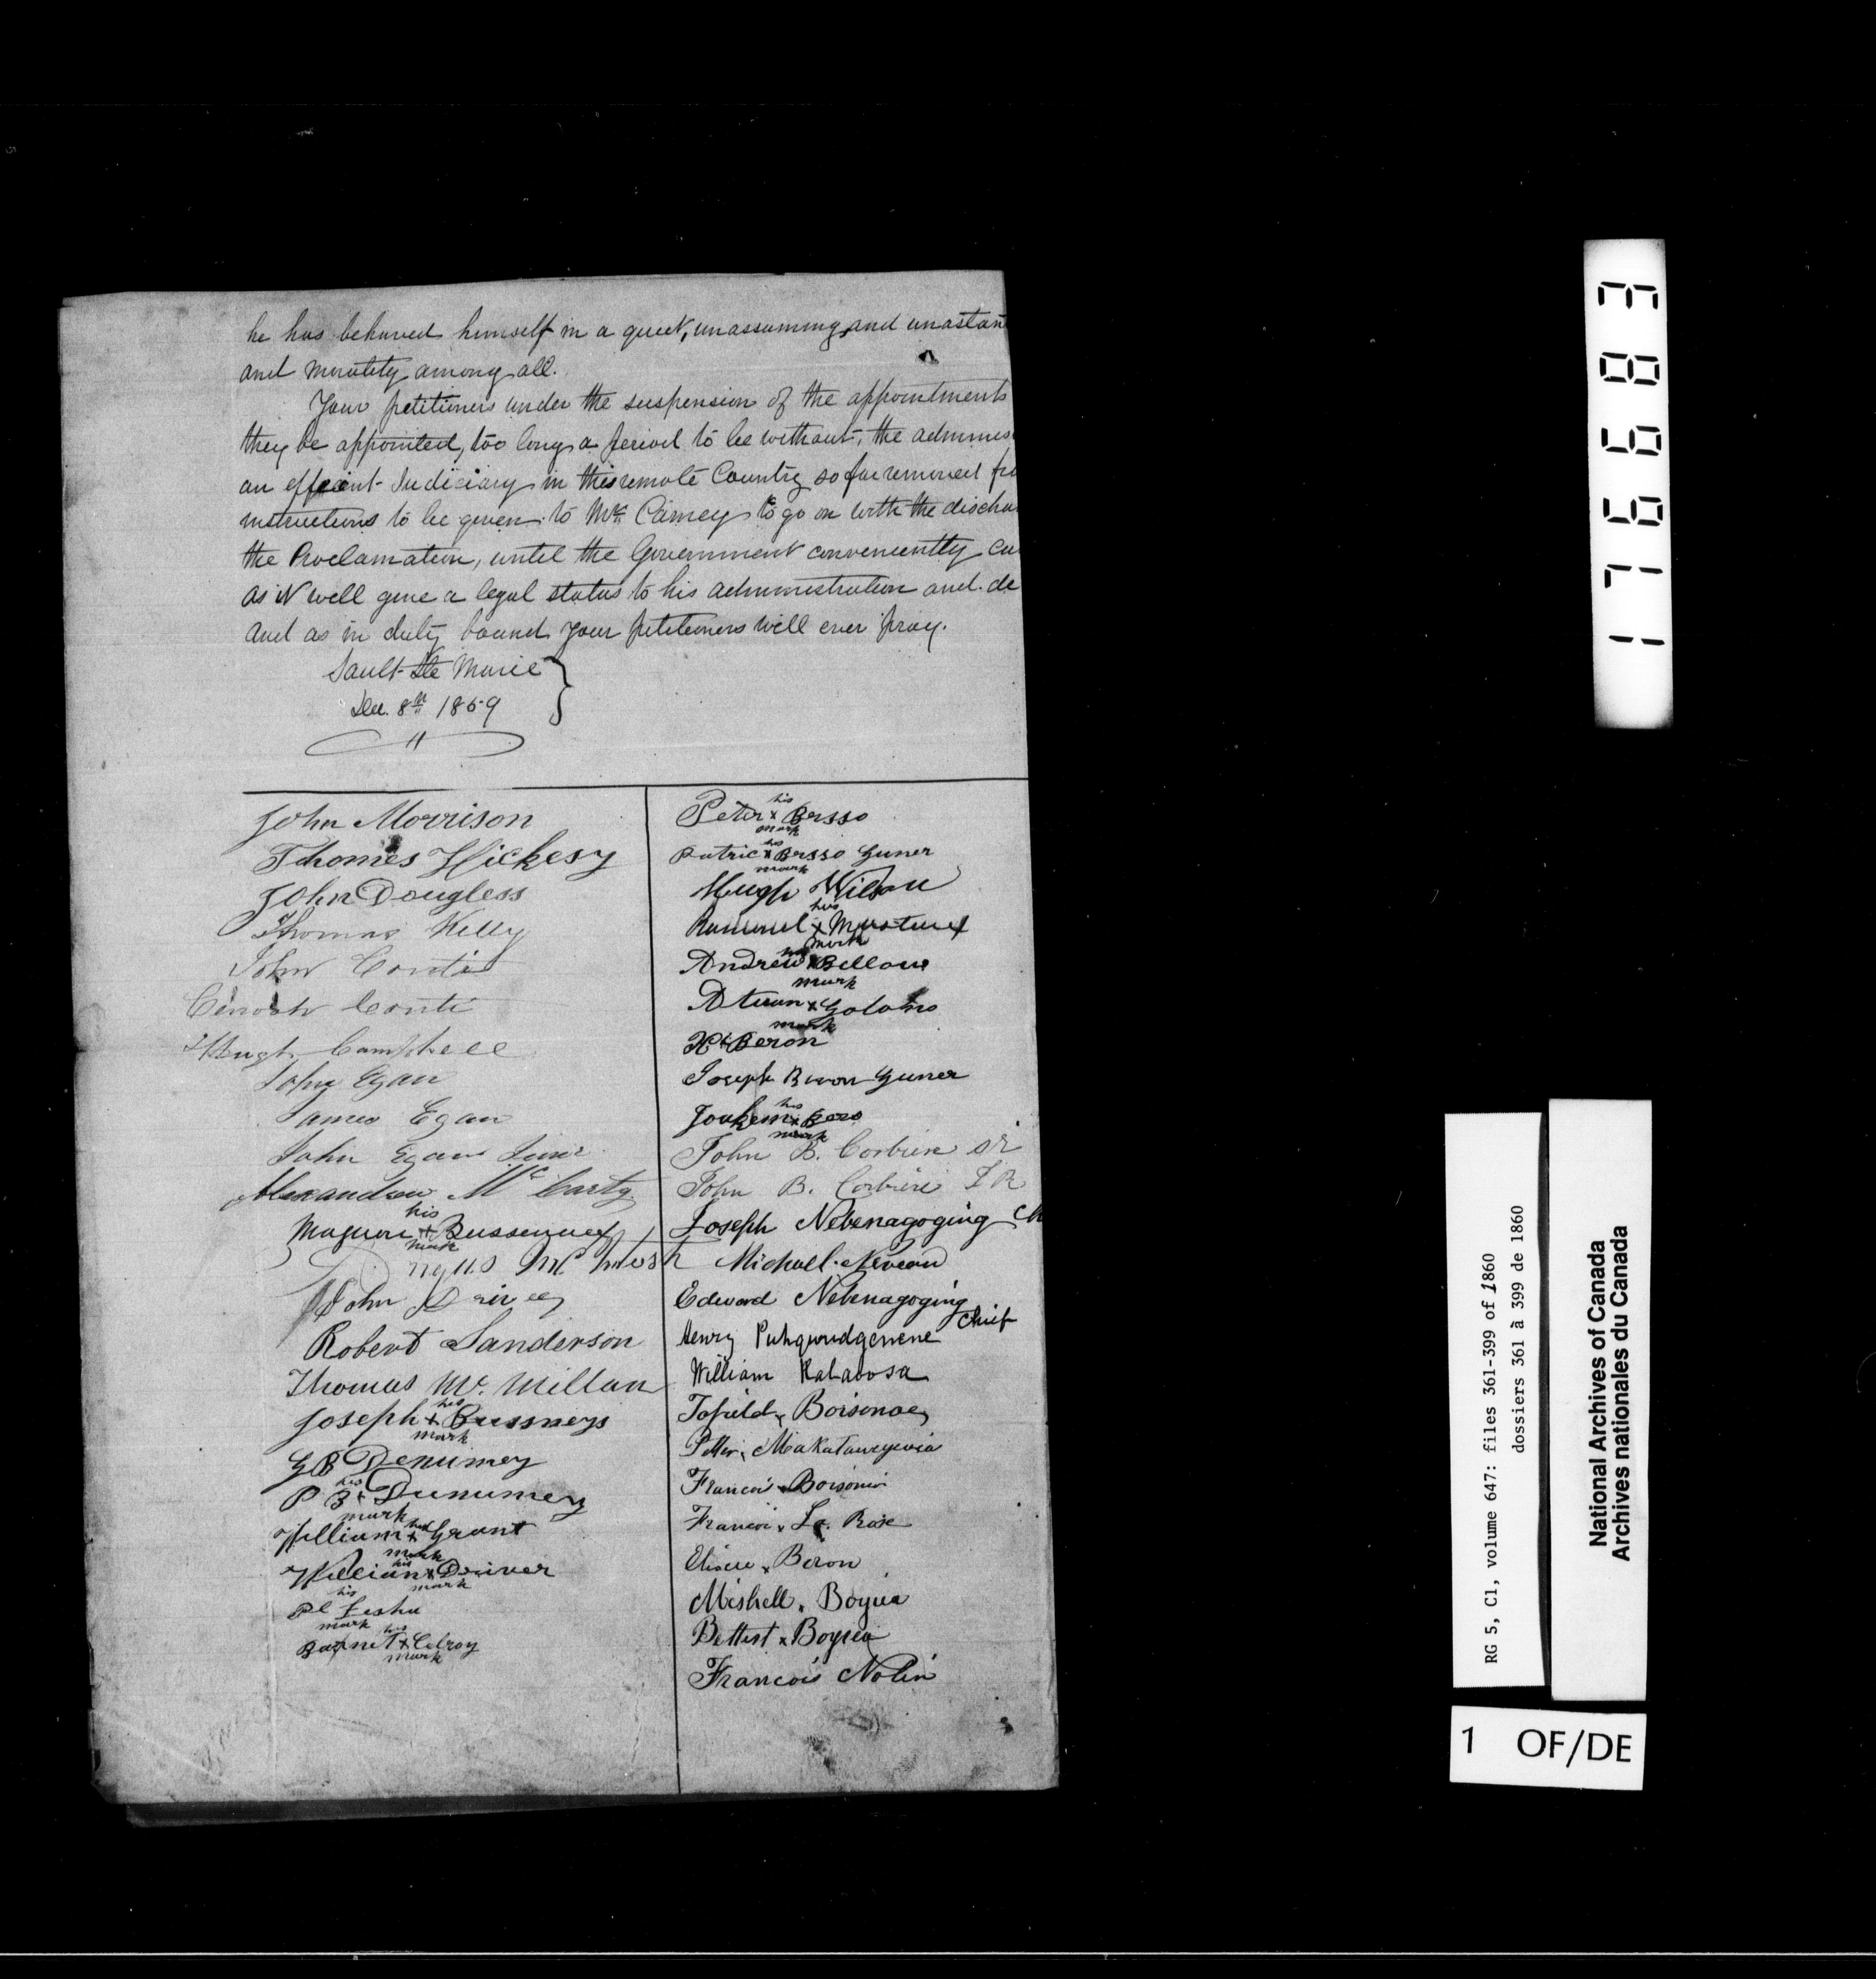 he has behaved himself in a quiet, unassuming and unostan
and morality among all.
Your petitioners under the suspension of the appointments
they be appointed, too long a period to be without, the adminis
an efficient Judiciary in this remote Country so far removed fr
instructions to be given to Mr. Carney to go on with the discha
the Proclamation, until the Government conveniently ca
as it well give a legal status to his administration and de
and as in duty bound your petitioners will ever pray.
Sault Ste Marie
Dec. 8th 1859
John Morrison
Thomes Hickesy
John Dougless
Thomas Kelly
John Conti
Conti
Hugh Campbell
John Egan
James Egan
John Egan Junr
Alexander McCarty
his
mark
John
Robert Sanderson
Thomas Mc. Millan
Joseph his x mark Bussneys
GB Denumey
P B his x mark Dunumery
William his x mark Grant
William his x mark Driver
his
mark
his x mark
Peter his x mark Brsso
Patric his x mark Brsso Guner
Hugh Wilson
his x mark
Andrew his x mark Bellour
x
mark
x Beron
Joseph Guner
his x mark
John B. Corbiere Sr
John B. Corbiere JR
Joseph Nebenagoging Ch
Michael Neveau
Edward Nebenagoging
Chief
Henry Puhqwudgenene
William Kabaosa
x Boisonae
Francois x Boisonie
Francoi x La Rose
x Beron
Mishell x Boyea
Bettist x Boyea
Francois Nolin
1769683
RG 5, C1, volume 647: files 361-399 of 1860
dossiers 361 à 399 de 1860
National Archives of Canada
Archives nationales du Canada
1 OF/DE